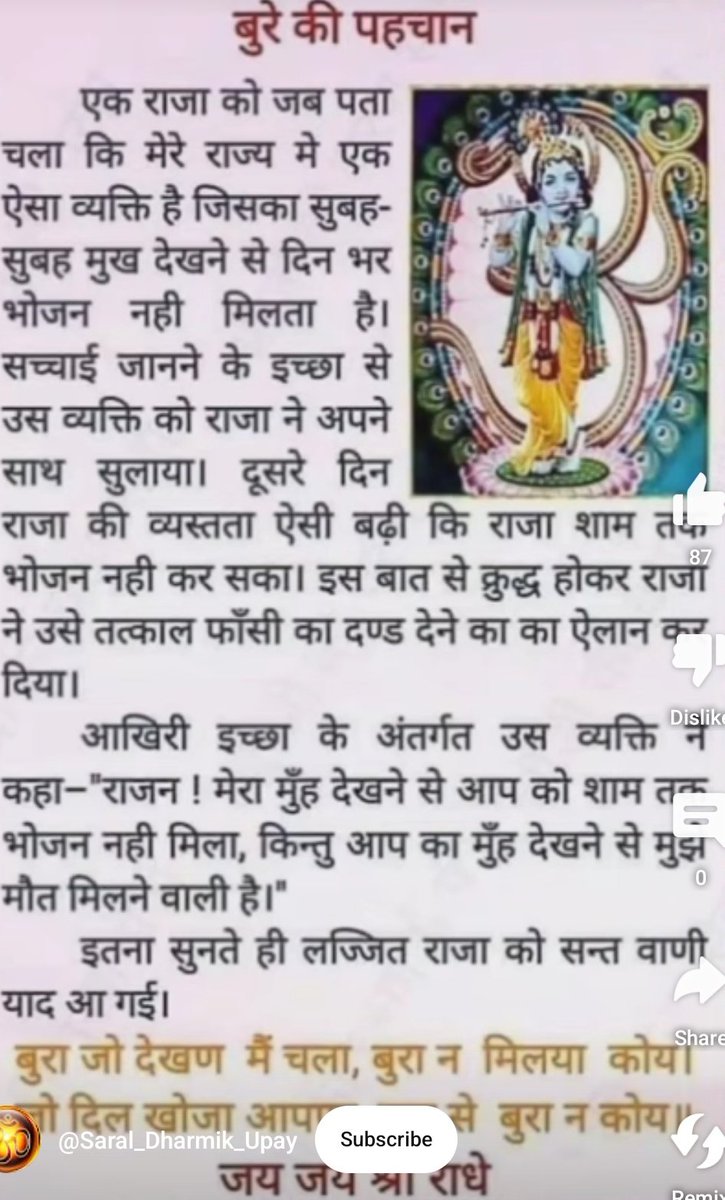 बुरे की पहचान
एक राजा को जब पता
चला कि मेरे राज्य मे एक
ऐसा व्यक्ति है जिसका सुबह-
सुबह मुख देखने से दिन भर
भोजन नही मिलता है।
सच्चाई जानने के इच्छा से
उस व्यक्ति को राजा ने अपने
साथ सुलाया। दूसरे दिन
राजा की व्यस्तता ऐसी बढ़ी कि राजा शाम तक
भोजन नही कर सका। इस बात से क्रुद्ध होकर राजा
ने उसे तत्काल फाँसी का दण्ड देने का का ऐलान कर
दिया।
आखिरी इच्छा के अंतर्गत उस व्यक्ति ने
कहा–"राजन ! मेरा मुँह देखने से आप को शाम तक
भोजन नही मिला, किन्तु आप का मुँह देखने से मुझे
मौत मिलने वाली है।"
इतना सुनते ही लज्जित राजा को सन्त वाणी
याद आ गई।
बुरा जो देखण मैं चला, बुरा न मिलया कोय।
दिल खोजा से बुरा न कोय॥
जय जय श्री राधे
87
Dislike
0
Share
Remix
@Saral_Dharmik_Upay
Subscribe